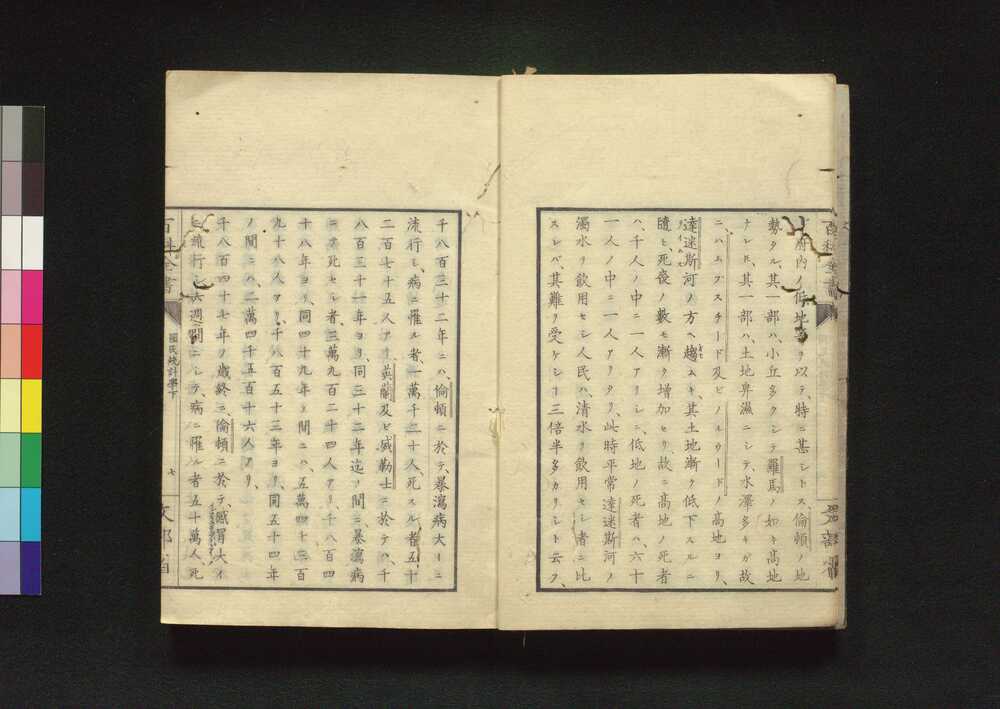 府内ノ低地ヲ以テ、特ニ甚シトス、倫頓ノ地
勢タル、其一部ハ、小丘多クシテ羅馬ノ如キ高地
ナレ𪜈、其一部ハ、土地卑濕ニシテ、水澤多キガ故
ニ、ハムプスチード及ビノルウードノ高地ヨリ、
達迷斯河ノ方ヘ趨ムキ、其土地漸ク低下スルニ
隨ヒ、死喪ノ數モ漸ク増加セリ、故ニ高地ノ死者
ハ、千人ノ中ニ一人アリシニ、低地ノ死者ハ、六十
一人ノ中ニ一人アリタリ、此時平常達迷斯河ノ
濁水ヲ飲用セシ人民ハ、清水ヲ飲用セシ者ニ比
スレバ、其難ヲ受ケシヿ三倍半多カリシト云フ、
百科全書
文部省
千八百三十二年ニハ、倫頓ニ於テ、暴瀉病大ーニ
流行シ、病ニ罹ル者、一萬千二十人、死スル者五千
二百七十五人アリ、英蘭及ビ威勒士ニ於テハ、千
八百三十一年ヨリ、同三十二年迄ノ間ニ、暴瀉病
ニテ死セル者、三萬九百二十四人アリ、千八百四
十八年ヨリ、同四十九年ノ間ニハ、五萬四千三百
九十八人アリ、千八百五十三年ヨリ、同五十四年
ノ間ニハ、二萬四千五百十六人アリ、
千八百四十七年ノ歳終ニ、倫頓ニ於テ、感冒大イ
ニ流行シ、六週間ニシテ、病ニ罹ル者五十萬人、死
百科全書
國民統計學下
七
文部省